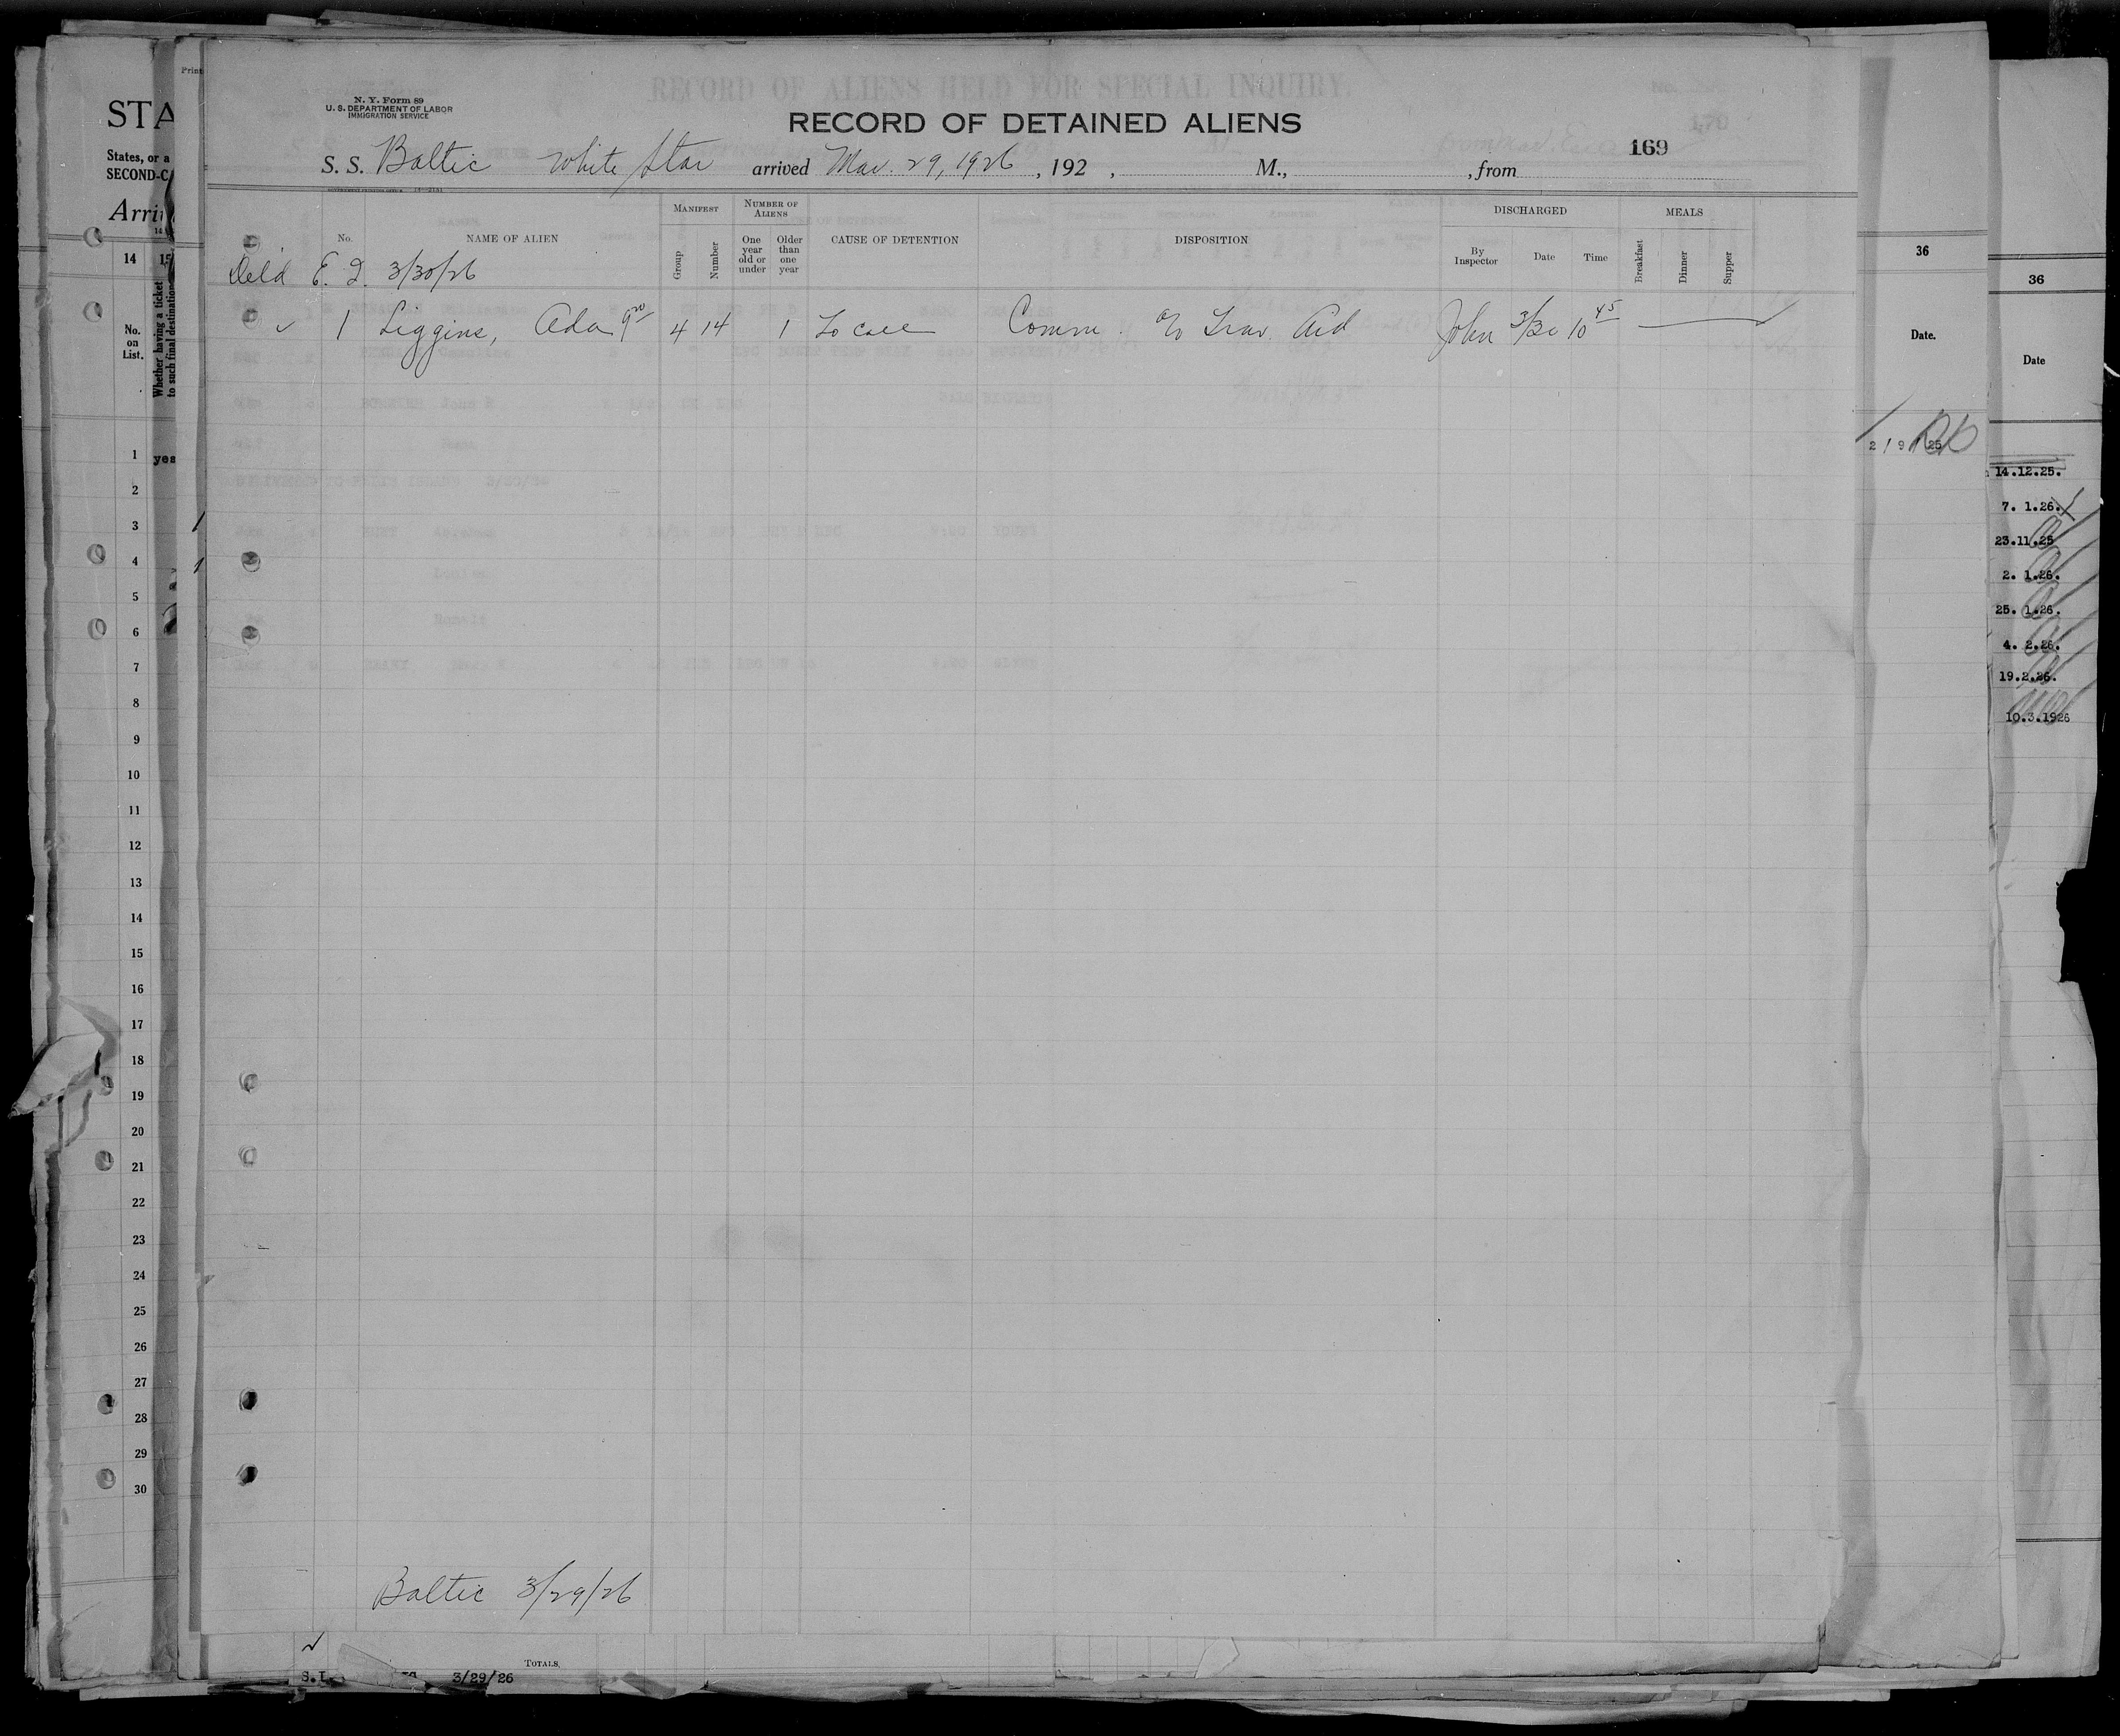 N. Y. Form 89
U. S. DEPARTMENT OF LABOR
IMMIGRATION SERVICE
RECORD OF ALIENS HELD FOR SPECIAL INQUIRY
RECORD OF DETAINED ALIENS
170
169
S. S. Baltic White Star arrived Mar. 29, 1926, 192 , M., , from
MANIFEST NUMBER OF ALIENS DISCHARGED MEALS
No. NAME OF ALIEN Group Number One year old or under Older than one year CAUSE OF DETENTION DISPOSITION By Inspector Date Time Breakfast Dinner Supper
Deld E. I. 3/30/26
✓ 1 Liggins, Ada 4 14 1 To call Comm. c/o Trav. Aid John 3/30 10 45
Baltic 3/29/26
TOTALS,
3/29/26
Print
STA
States, or a
SECOND-C
Arri
14 15
No. on List.
Whether having a ticket to such final destination
1 yes
2
3
4
5
6
7
8
9
10
11
12
13
14
15
16
17
18
19
20
21
22
23
24
25
26
27
28
29
30
36
Date.
36
Date
14.12.25.
7. 1.26.
23.11.25
2. 1.26.
25. 1.26.
4. 2.26.
19.2.26.
10.3.1926